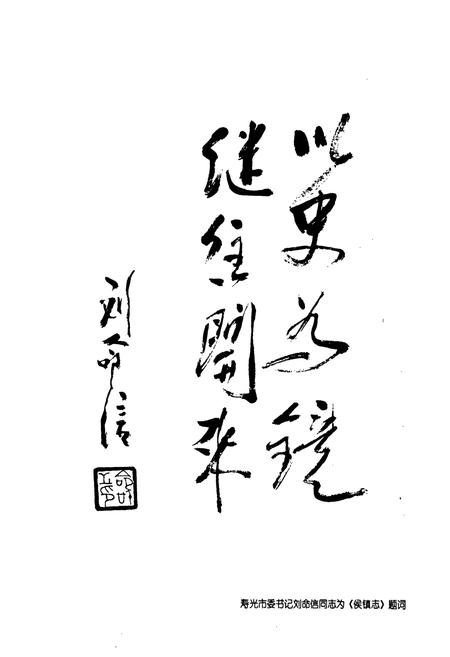 以史为镜
继往開来
刘命信
寿光市委书记刘命信同志为《侯镇志》题词